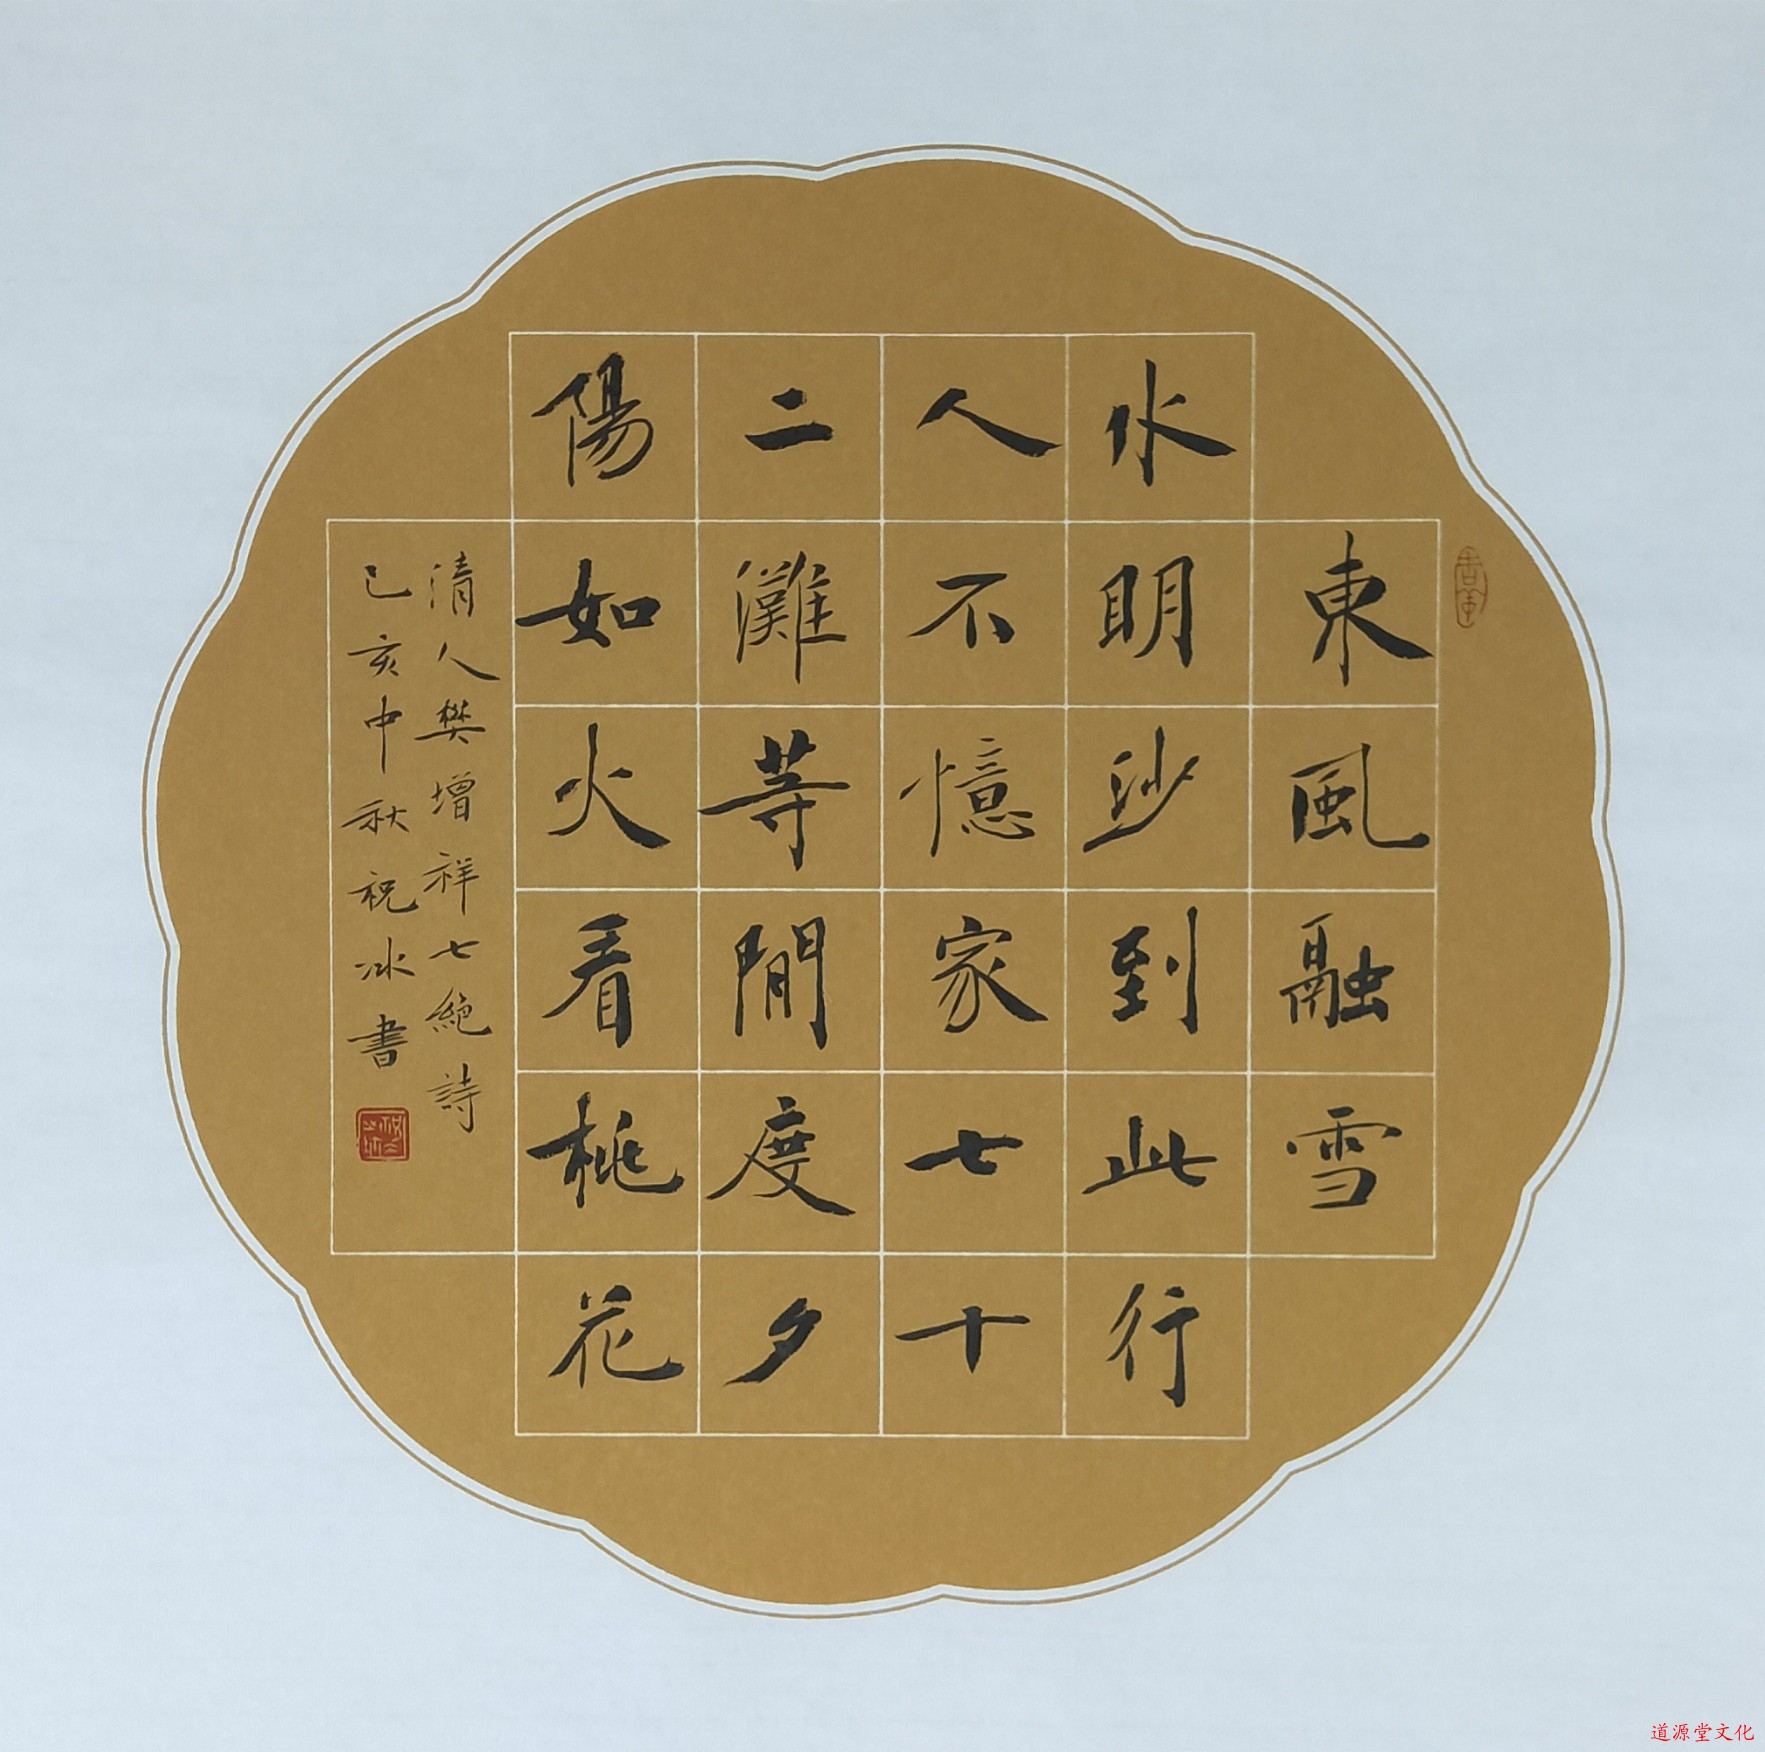 東風融雪
水明沙到此行
人不憶家七十
二灘等閒度夕
陽如火看桃花
清人樊增祥七絕詩
己亥中秋祝冰書
道源堂文化